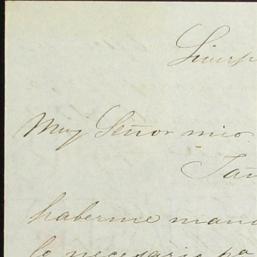 Liverp
Muy Señor mio
Tan
haberme mand
lo necesario pa